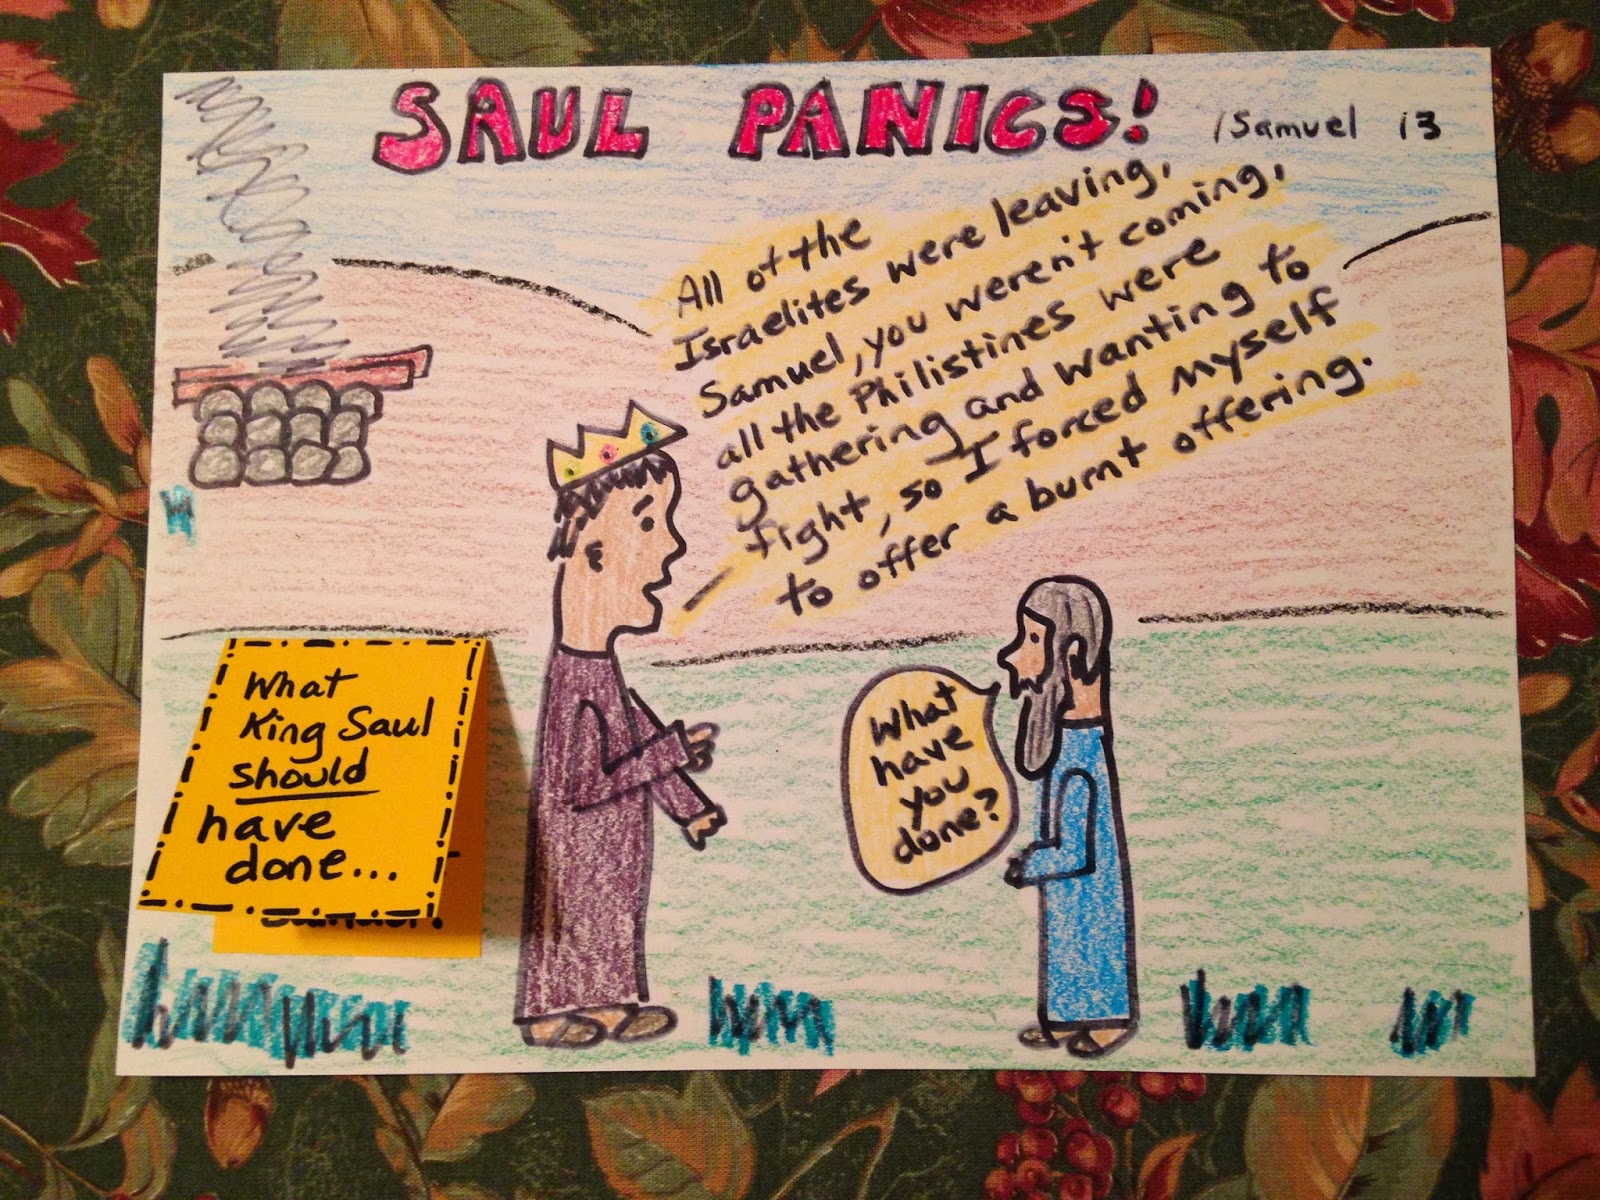 SAUL PANICS!
1 Samuel 13
All of the
Israelites were leaving,
Samuel, you weren't coming,
all the Philistines were
gathering and wanting to
fight, so I forced myself
to offer a burnt offering.
What
have
you
done?
What
King Saul
should
have
done...